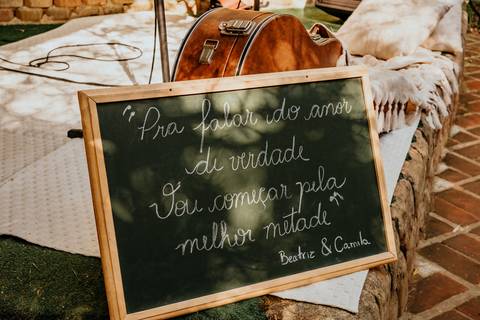 "Pra falar do amor
de verdade
Vou começar pela
melhor metade"
Beatriz & Camila